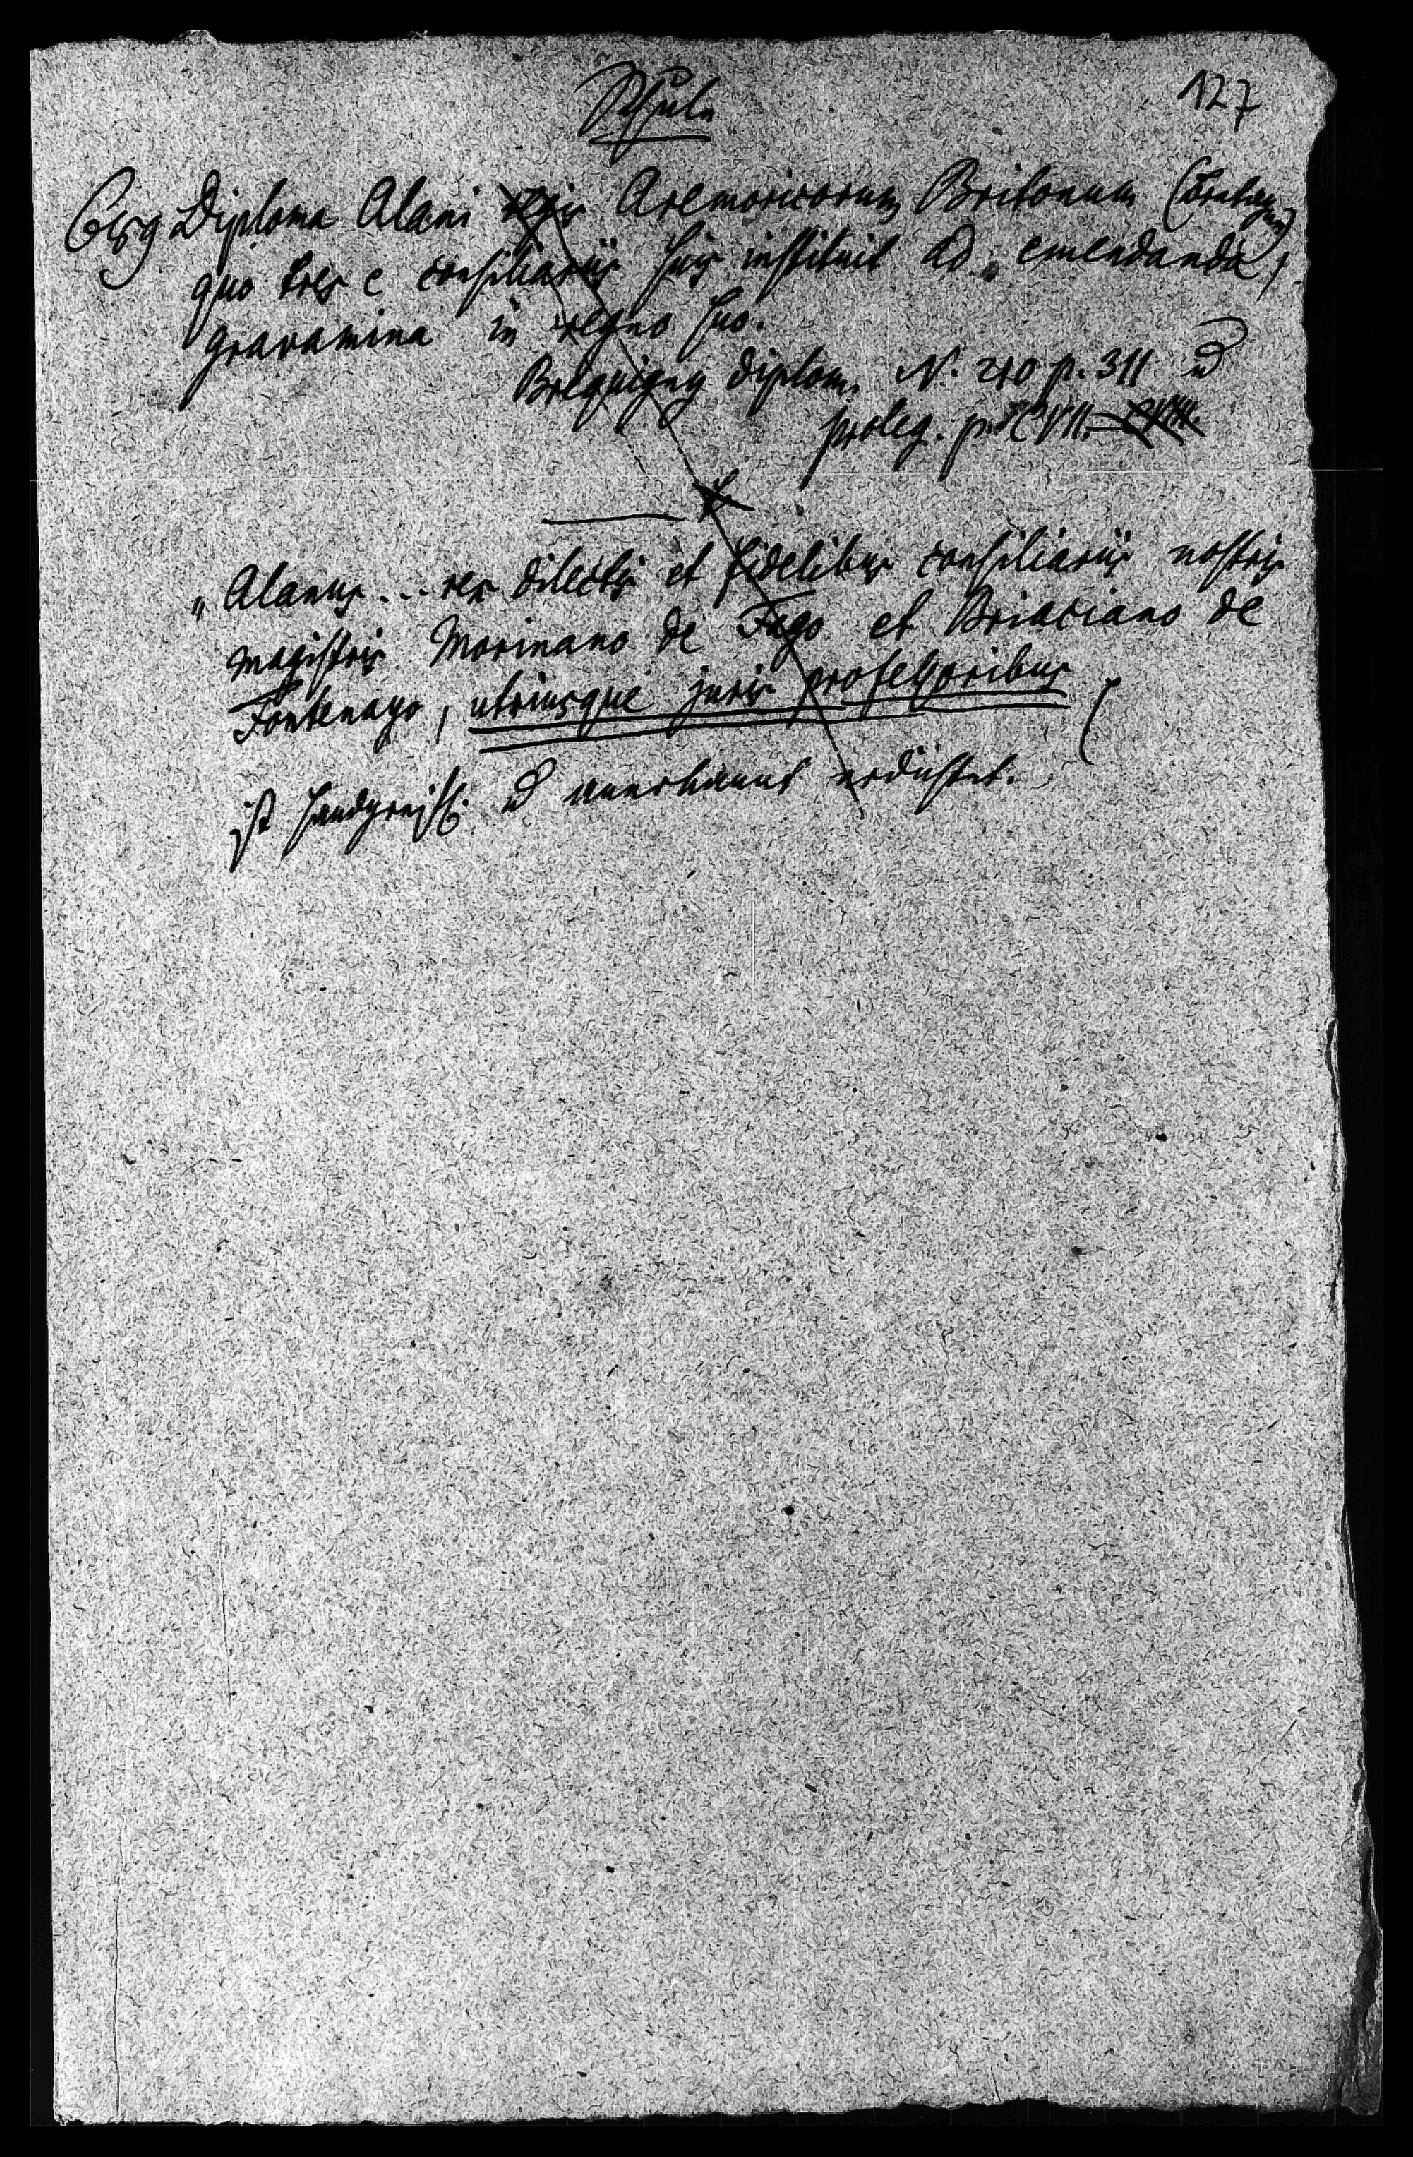 Schule
127
689 Diploma Alani Regis Aremoricorum Britonum
quo tres e consiliariis suis instituit ad emendanda
gravamina in regno suo.
Brequigny diplom. N. 210 p. 311 &
proleg. p. XCVII.
„Alanus... rex dilectis et fidelibus consiliariis nostris
magistris Morinano de Fago et Briaciano de
Fontenayo, utriusque juris professoribus
ist handgreifl. & anerkannt erdichtet.